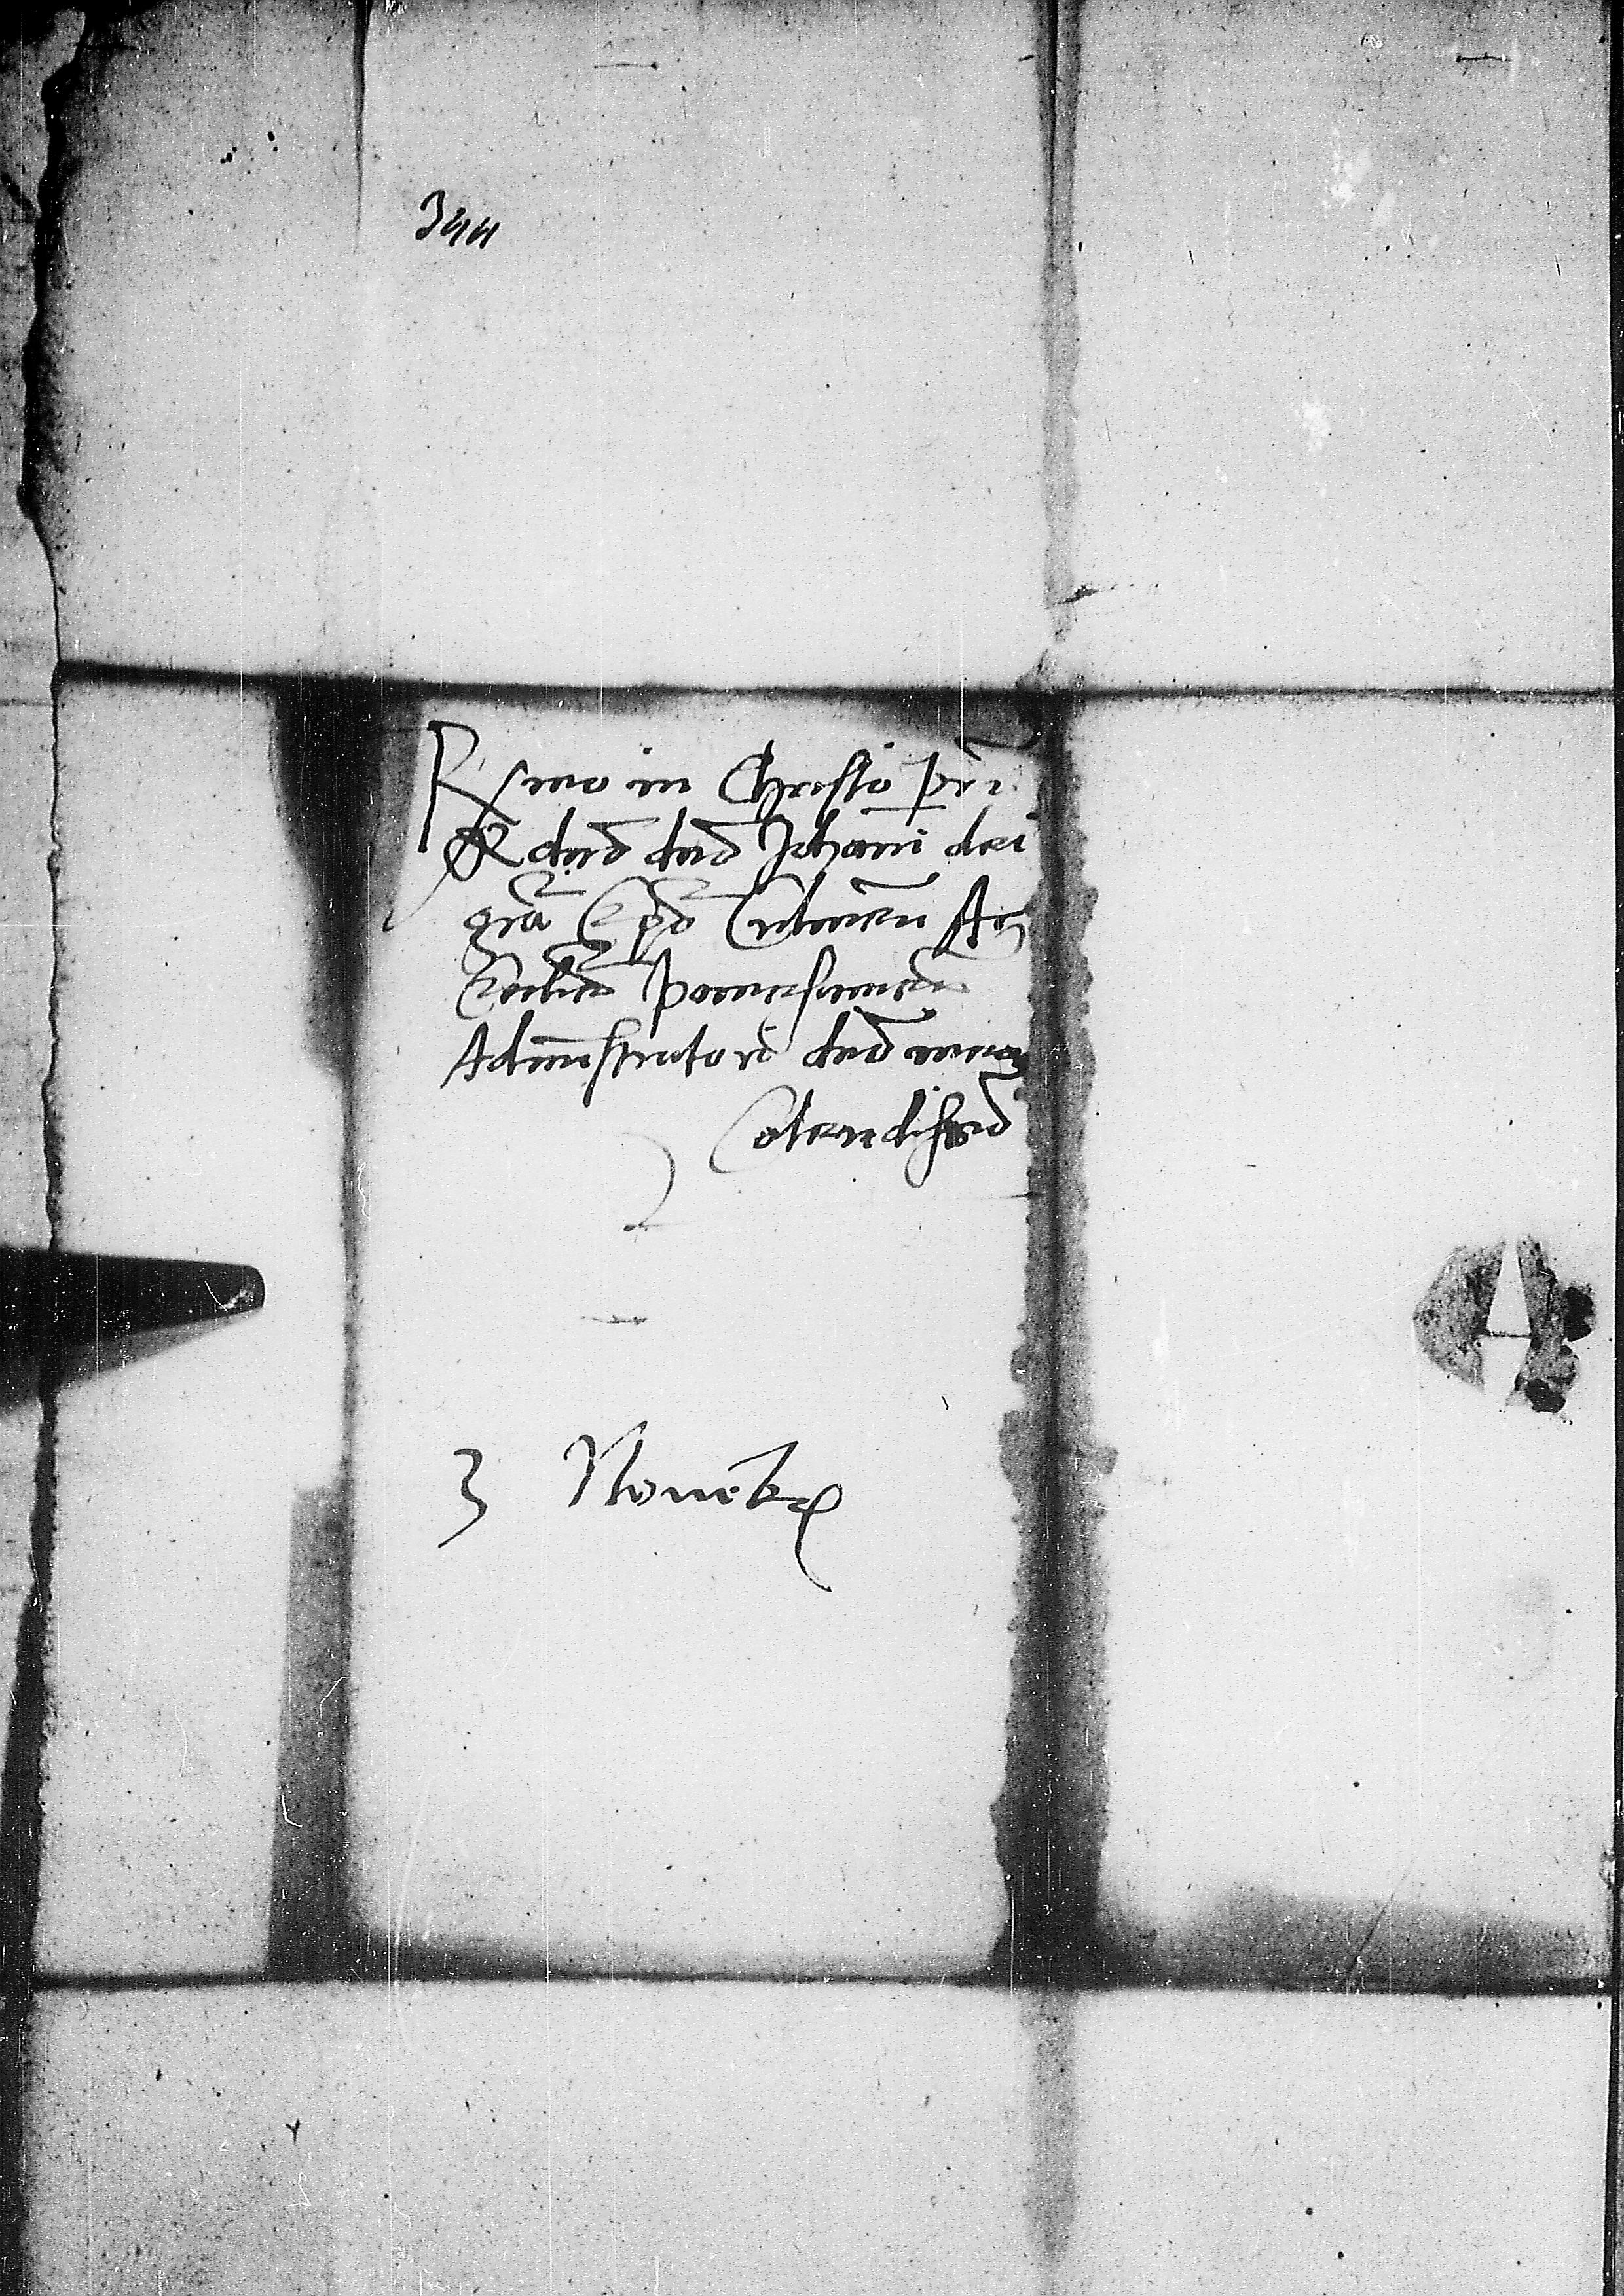 344
R smo in Christo p̃ri
& dño dño Johãni dei
grã Ep̃o Culmeñ Ac
Ecclie Pomesanieñ
Administratori dño meo
Colendissimo
3 Nouẽbr